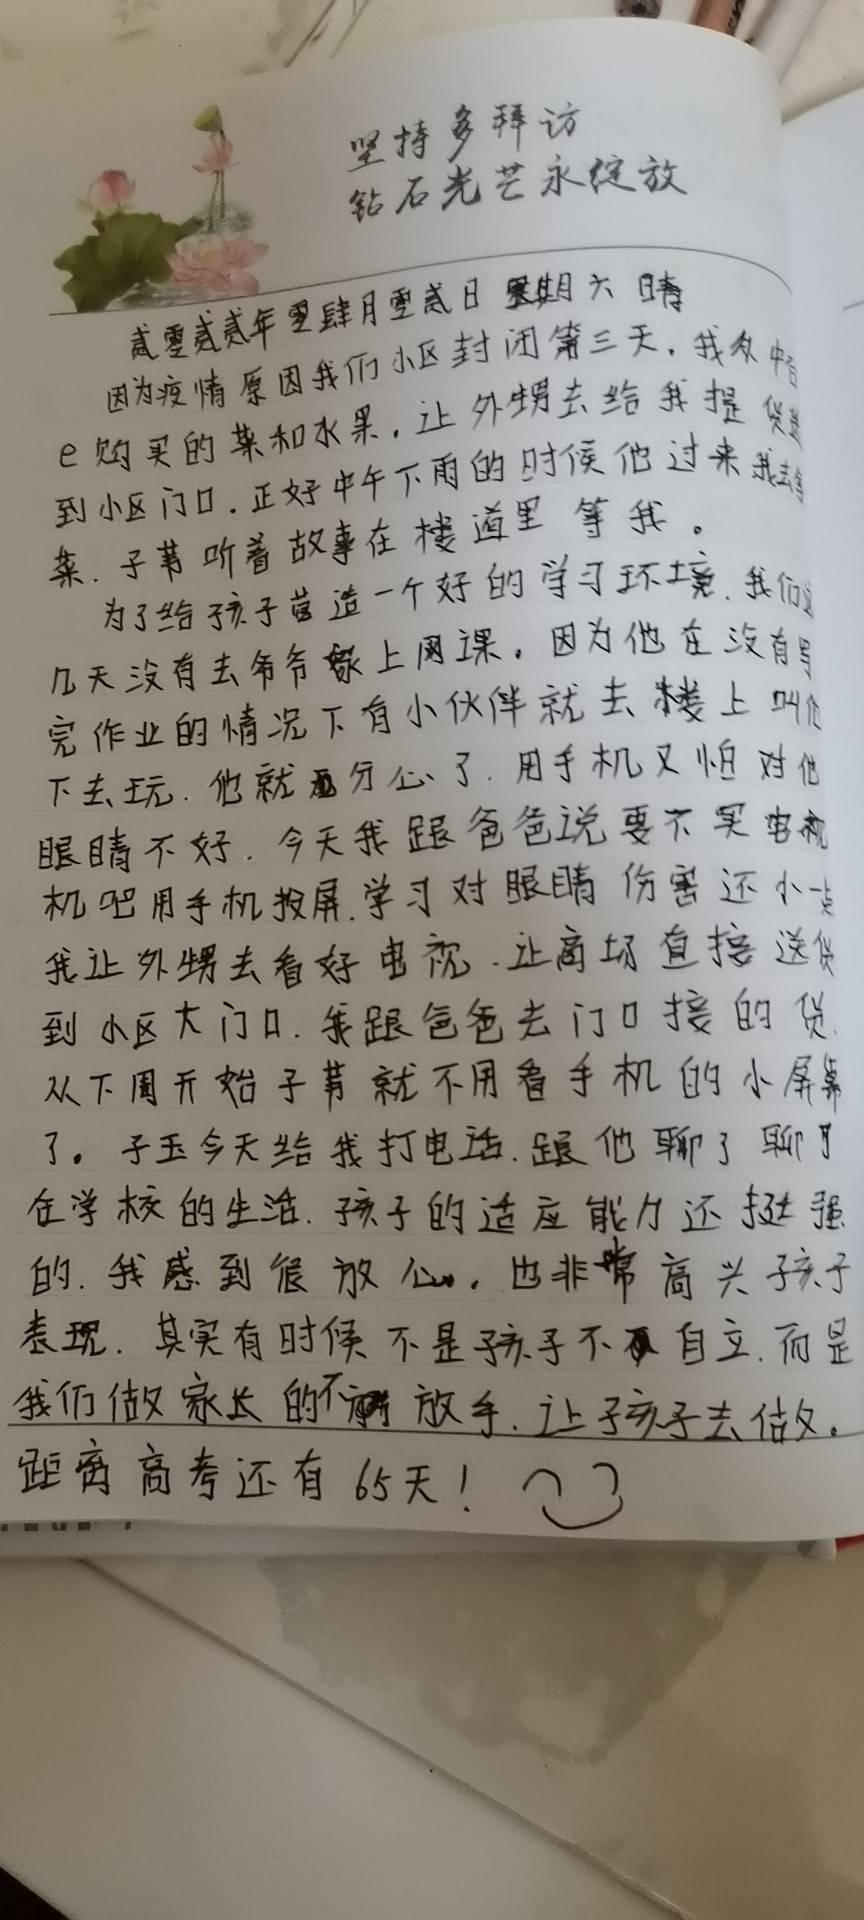 坚持多拜访
钻石光芒永绽放
贰零贰贰年零肆月零贰日 星期六 晴
因为疫情原因我们小区封闭第三天，我从中百
e购买的菜和水果，让外甥去给我提货送
到小区门口，正好中午下雨的时候他过来我去拿
菜，子苇听着故事在楼道里等我。
为了给孩子营造一个好的学习环境，我们这
几天没有去爷爷家上网课。因为他在没有写
完作业的情况下有小伙伴就去楼上叫他
下去玩，他就分心了，用手机又怕对他
眼睛不好，今天我跟爸爸说要不买电视
机吧用手机投屏，学习对眼睛伤害还小一点
我让外甥去看好电视，让商场直接送货
到小区大门口，我跟爸爸去门口接的货，
从下周开始子苇就不用看手机的小屏幕
了。子玉今天给我打电话，跟他聊了聊
在学校的生活，孩子的适应能力还挺强
的，我感到很放心，也非常高兴孩子
表现，其实有时候不是孩子不自立，而是
我们做家长的不放手，让孩子去做。
距离高考还有65天！